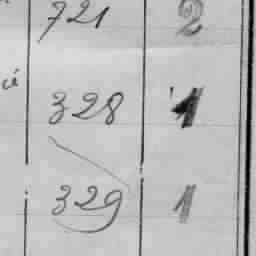 721 2
328 1
329 1